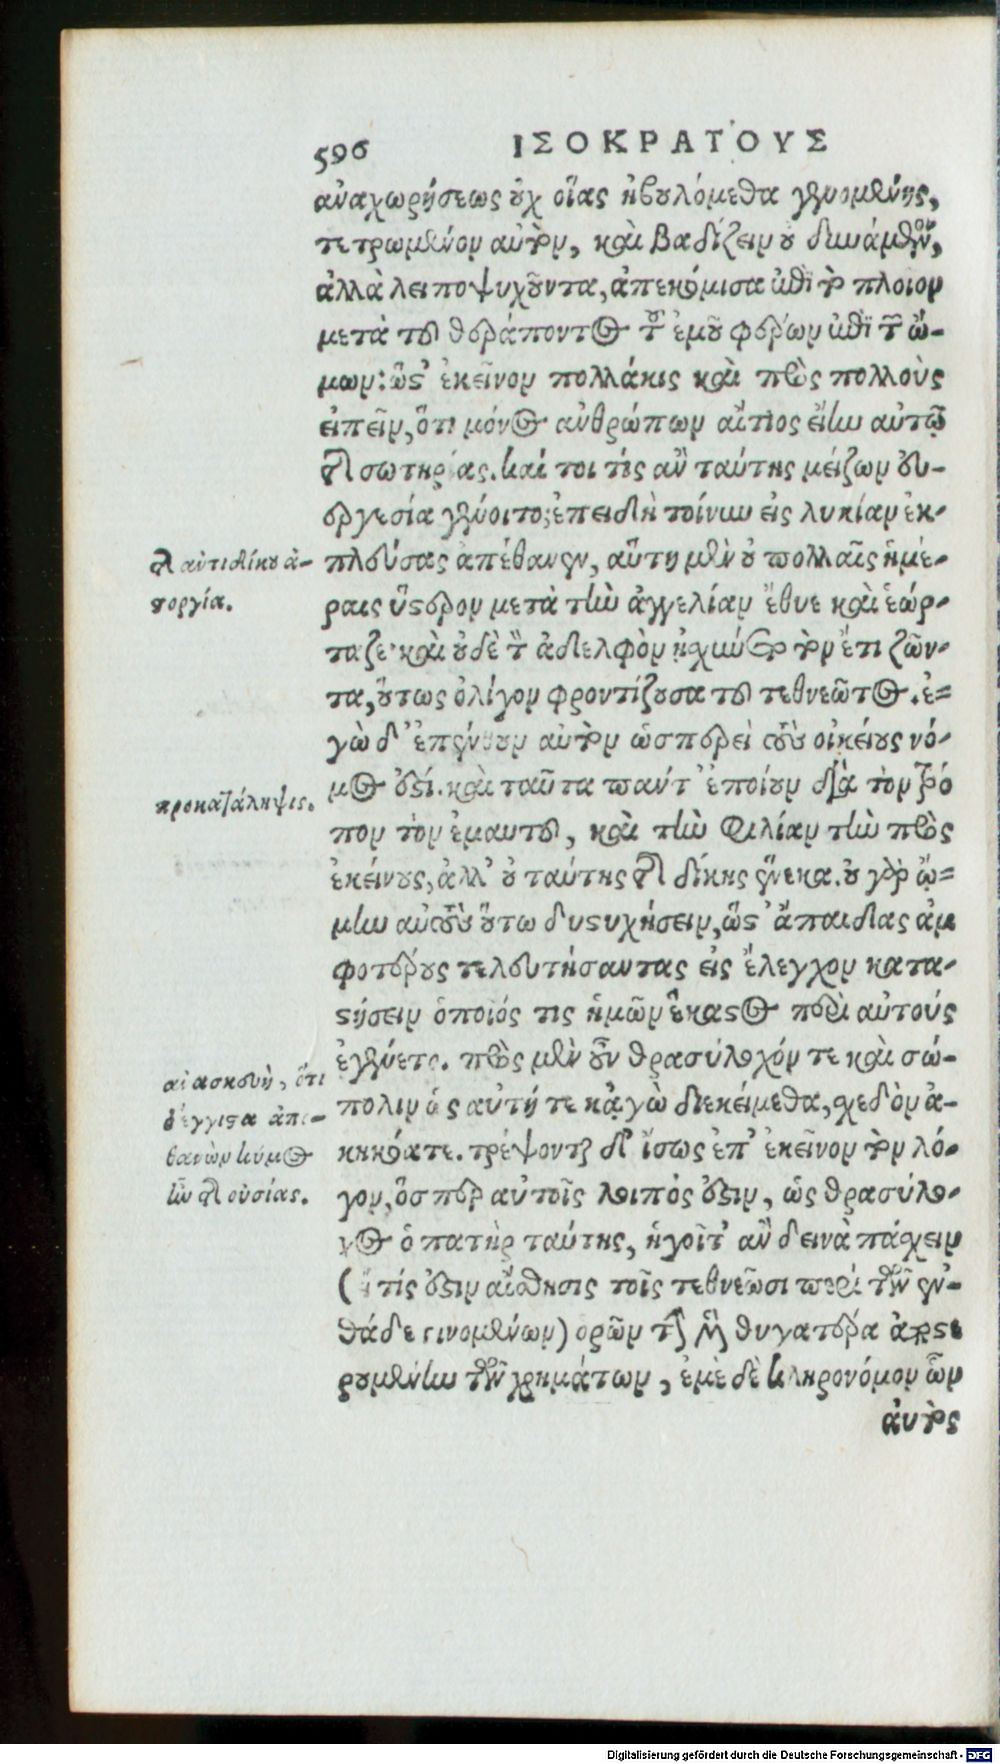 596 ΙΣΟΚΡΑΤΟΥΣ
ἀναχωρήσεως οὐχ οἵας ἠβουλόμεθα γενομένης,
τετρωμένον αὐτὸν, καὶ βαδίζειν οὐ δυνάμενον,
ἀλλὰ λειποψυχοῦντα, ἀπεκόμισα ἐπὶ τὸ πλοῖον
μετὰ τοῦ θεράποντος τοῦ ἐμοῦ φέρων ἐπὶ τῶν ὤ-
μων: ὥστ' ἐκεῖνον πολλάκις καὶ πρὸς πολλοὺς
εἰπεῖν, ὅτι μόνος ἀνθρώπων αἴτιος εἴην αὐτῷ
τῆς σωτηρίας. καί τοι τίς ἂν ταύτης μείζων εὐ-
εργεσία γένοιτο; ἐπειδὴ τοίνυν εἰς λυκίαν ἐκ-
πλεύσας ἀπέθανεν, αὕτη μὲν οὐ πολλαῖς ἡμέ-
ραις ὕστερον μετὰ τὴν ἀγγελίαν ἔθυε καὶ ἑώρ-
ταζε· καὶ οὐδὲ τὸν ἀδελφὸν ᾐσχύνετο τὸν ἔτι ζῶν-
τα, οὕτως ὀλίγον φροντίζουσα τοῦ τεθνεῶτος. ἐ-
γὼ δ' ἐπένθουν αὐτὸν ὥσπερεὶ τοὺς οἰκείους νό-
μος ἐστί. καὶ ταῦτα πάντ' ἐποίουν διὰ τὸν τρό
πον τὸν ἐμαυτοῦ, καὶ τὴν φιλίαν τὴν πρὸς
ἐκείνους, ἀλλ' οὐ ταύτης τῆς δίκης ἕνεκα. οὐ γὰρ ᾤ-
μην αὐτοὺς οὕτω δυστυχήσειν, ὥστ' ἄπαιδας ἀμ
φοτέρους τελευτήσαντας εἰς ἔλεγχον κατα-
στήσειν ὁποῖός τις ἡμῶν ἕκαστος περὶ αὐτούς
ἐγένετο. πρὸς μὲν οὖν θρασύλοχόν τε καὶ σώ-
πολιν ὡς αὐτή τε κἀγὼ διεκείμεθα, σχεδὸν ἀ-
κηκόατε. τρέψονται δ' ἴσως ἐπ' ἐκεῖνον τὸν λό-
γον, ὅσπερ αὐτοῖς λοιπός ἐστιν, ὡς θρασύλο-
χος ὁ πατὴρ ταύτης, ἡγοῖτ' ἂν δεινὰ πάσχειν
(εἴ τίς ἐστιν αἴσθησις τοῖς τεθνεῶσι περὶ τῶν ἐν-
θάδε γινομένων) ὁρῶν τὴν μὲν θυγατέρα ἀποστε
ρουμένην τῶν χρημάτων, ἐμὲ δὲ κληρονόμον ὧν
αὐτὸς
τῆς ἀντιδίκου ἀ-
στοργία.
προκατάληψις.
αἱ ἀσκευὴ, ὅτι
ὁ ἔγγιστα ἀπο-
θανὼν κύριος
ἦν τῆς οὐσίας.
Digitalisierung gefördert durch die Deutsche Forschungsgemeinschaft - DFG